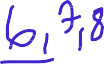 6, 7, 8